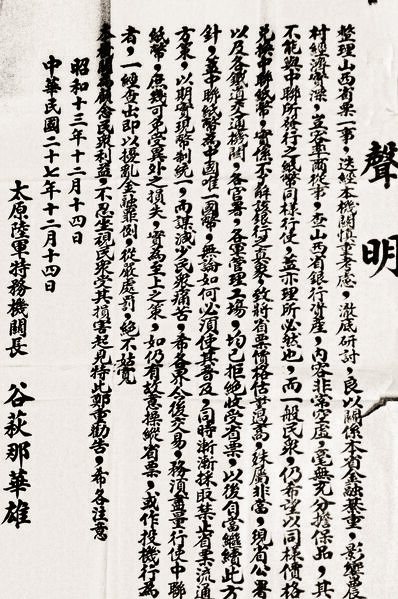 聲明
整理山西省票一事，迭經本機關慎重考慮，澈底研討，良以關係本省金融綦重，影響農
村經濟實深，豈容草商從事，查山西省銀行資產，內容非常空虛，毫無充分擔保品，其
不能與中聯所發行之紙幣同樣行使，蓋亦理所必然也，而一般民衆，仍希望以同樣價格
兌換中聯紙幣，實係不了解該銀行之真象，致將省票價格估計過高，殊屬非當，現省公署
以及各鐵道交通機關，各官署，各軍管理工場，均已拒絕收受省票，以後自當繼續此方
針，蓋中聯紙幣為中國唯一國幣，無論如何必須使其普及，同時漸漸採取禁止省票流通
方策，以期實現幣制統一，而謀減少民衆痛苦，希各界今後交易，務須盡量行使中聯
紙幣，庶幾可免受異外之損失，實為至上之策，如仍有故意操縱省票，或作投機行為
者，一經查出即以擾亂金融罪例，從嚴處罰，絕不姑寬
本機關為顧念民衆利益，不忍坐視民衆受其損害起見特此鄭重勸告，希各注意
昭和十三年十二月十四日
中華民國二十七年十二月十四日
太原陸軍特務機關長 谷荻那華雄